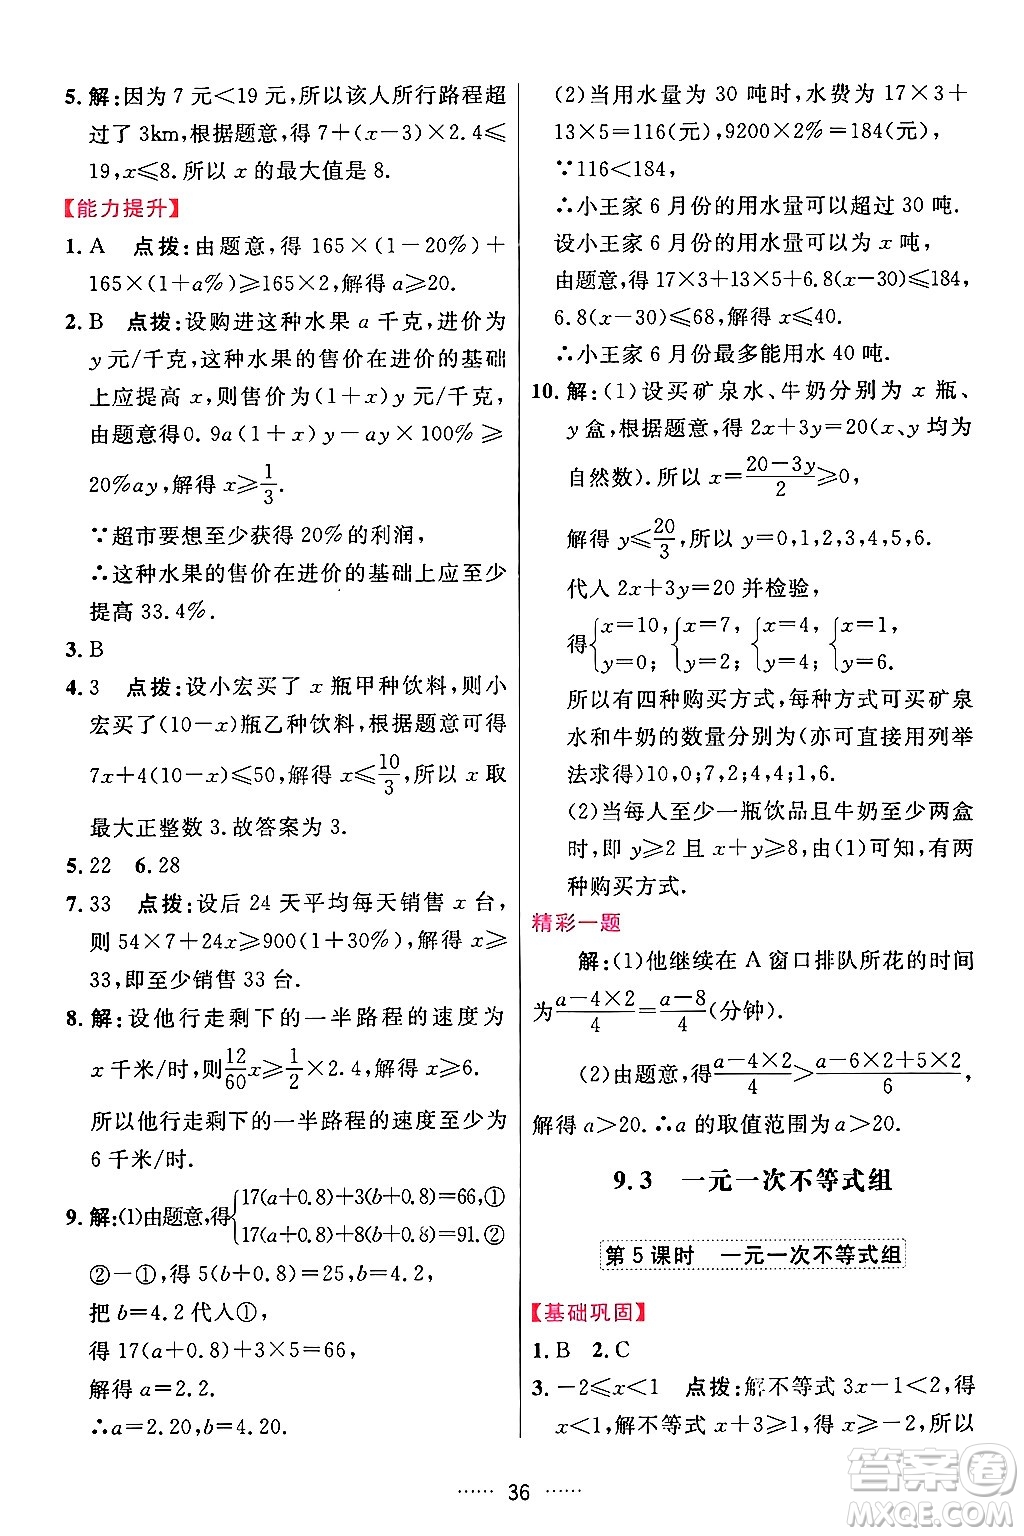 5. 解:因为 7 元<19 元,所以该人所行路程超
过了 3km,根据题意,得 7+(x-3)×2.4≤
19,x≤8.所以 x 的最大值是 8.
【能力提升】
1. A 点拨:由题意,得 165×(1-20%)+
165×(1+a%)≥165×2,解得 a≥20.
2. B 点拨:设购进这种水果 a 千克,进价为
y 元/千克,这种水果的售价在进价的基础
上应提高 x,则售价为(1+x)y 元/千克,
由题意得0.9a(1+x)y-ay×100%≥
20%ay,解得 x≥1/3.
∵超市要想至少获得 20%的利润,
∴这种水果的售价在进价的基础上应至少
提高 33.4%.
3. B
4. 3 点拨:设小宏买了 x 瓶甲种饮料,则小
宏买了(10-x)瓶乙种饮料,根据题意可得
7x+4(10-x)≤50,解得 x≤10/3,所以 x 取
最大正整数 3.故答案为 3.
5. 22 6. 28
7. 33 点拨:设后 24 天平均每天销售 x 台,
则 54×7+24x≥900(1+30%),解得 x≥
33,即至少销售 33 台.
8. 解:设他行走剩下的一半路程的速度为
x 千米/时,则12/60x≥1/2×2.4,解得 x≥6.
所以他行走剩下的一半路程的速度至少为
6 千米/时.
9. 解:(1)由题意,得{17(a+0.8)+3(b+0.8)=66,①
17(a+0.8)+8(b+0.8)=91.②
②-①,得 5(b+0.8)=25,b=4.2,
把 b=4.2 代人①,
得 17(a+0.8)+3×5=66,
解得 a=2.2.
∴a=2.20,b=4.20.
(2)当用水量为 30 吨时,水费为 17×3+
13×5=116(元),9200×2%=184(元),
∵116<184,
∴小王家 6 月份的用水量可以超过 30 吨.
设小王家 6 月份的用水量为 x 吨,
由题意,得 17×3+13×5+6.8(x-30)≤184,
6.8(x-30)≤68,解得 x≤40.
∴小王家 6 月份最多能用水 40 吨.
10. 解:(1)设买矿泉水、牛奶分别为 x 瓶、
y 盒,根据题意,得 2x+3y=20(x、y 均为
自然数).所以 x=(20-3y)/2≥0,
解得 y≤20/3,所以 y=0,1,2,3,4,5,6.
代人 2x+3y=20 并检验,
得{x=10, {x=7, {x=4, {x=1,
y=0; y=2; y=4; y=6.
所以有四种购买方式,每种方式购买矿泉
水和牛奶的数量分别为(亦可运用列举
法求得)10,0;7,2;4,4;1,6.
(2)当每人至少一瓶饮品且牛奶至少两盒
时,即 y≥2 且 x+y≥8,由(1)可知,有两
种购买方式.
精彩一题
解:(1)他继续在 A 窗口排队所花的时间
为(a-4×2)/4=(a-8)/4(分钟).
(2)由题意,得(a-4×2)/4>(a-6×2+5×2)/6,
解得 a>20.∴a 的取值范围为 a>20.
9.3 一元一次不等式组
第 5 课时 一元一次不等式组
【基础巩固】
1. B 2. C
3. -2≤x<1 点拨:解不等式 3x-1<2,得
x<1,解不等式 x+3≥1,得 x≥-2,所以
······ 36 ······
答案圈
MXQE.COM